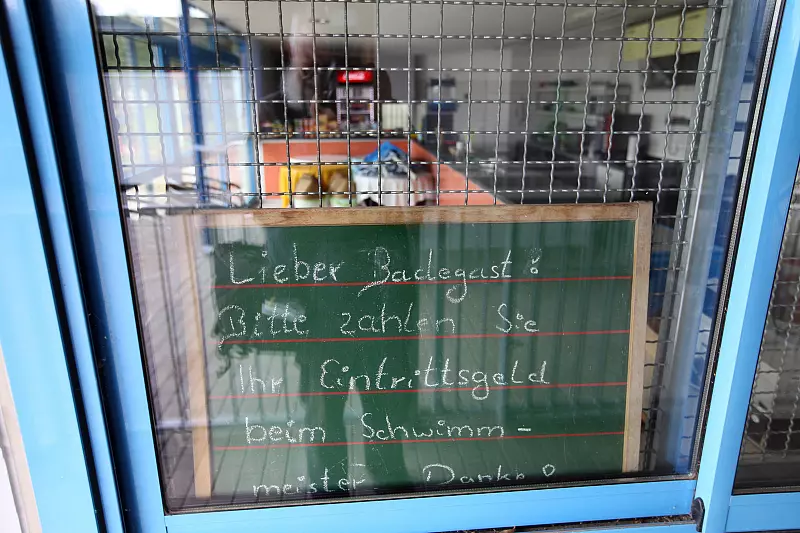 Lieber Badegast!
Bitte zahlen Sie
Ihr Eintrittsgeld
beim Schwimm-
meister. Danke!